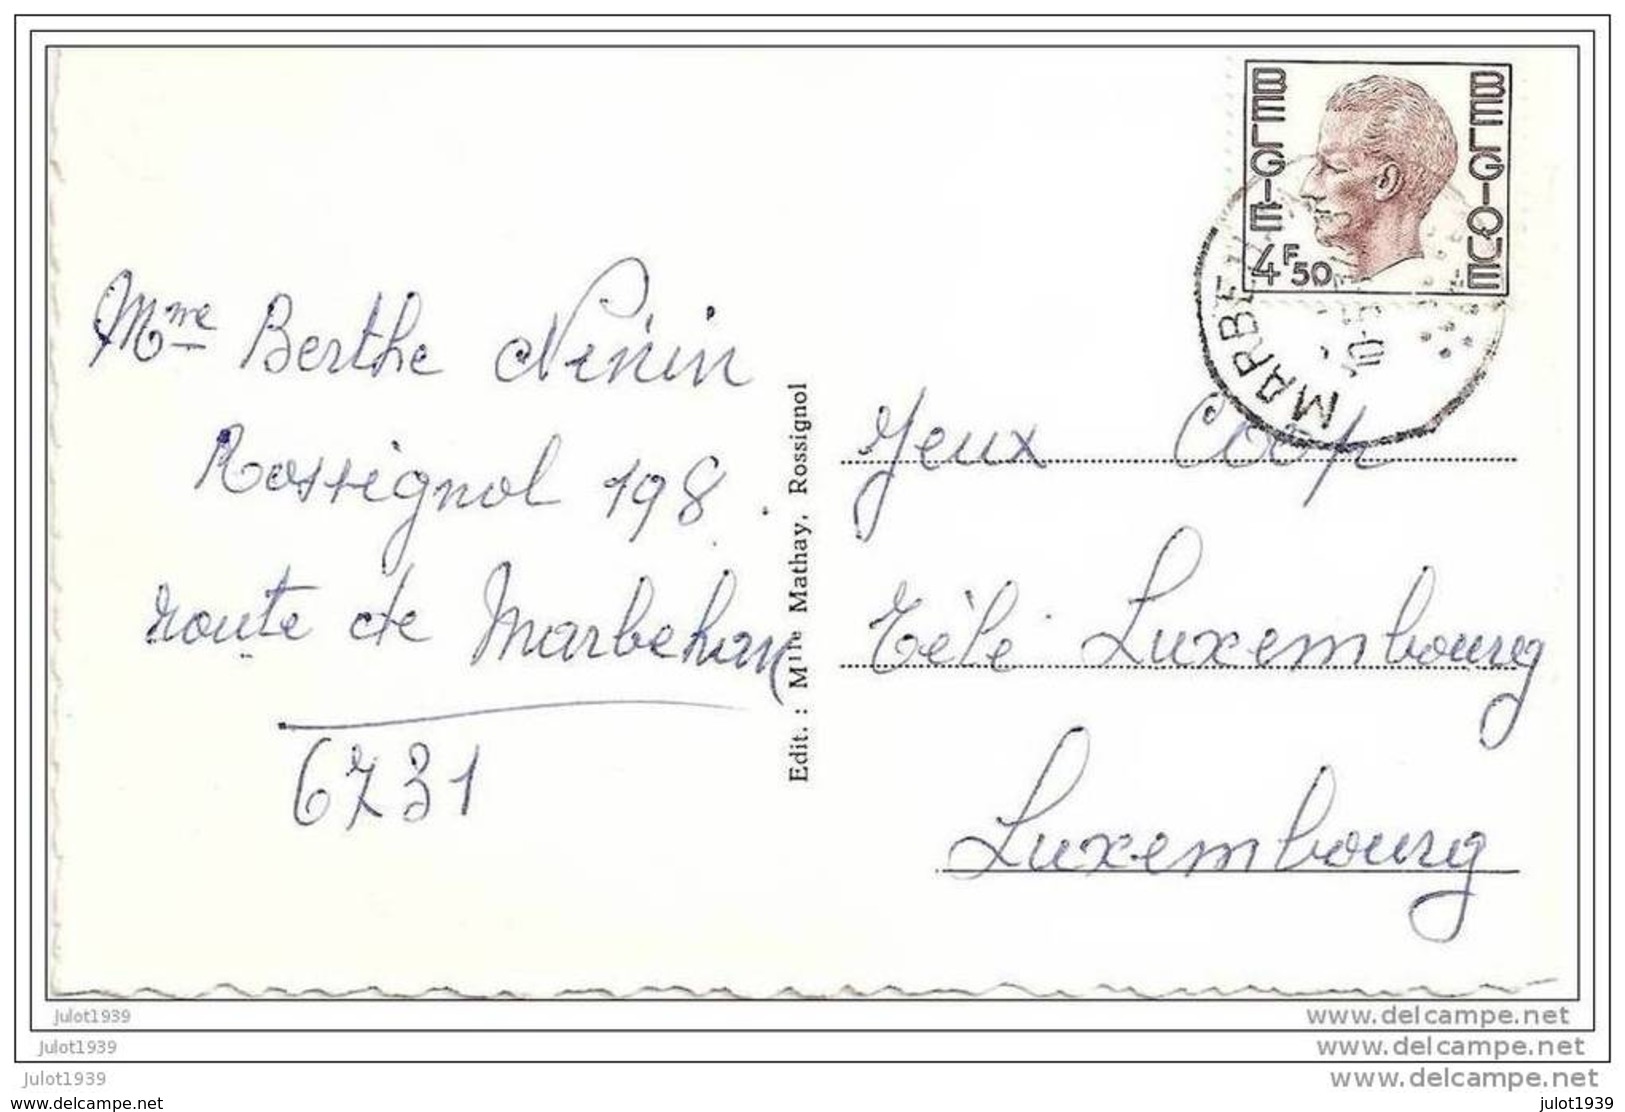 BELGIE
BELGIQUE
4F50
MARBE
10-
Mme Berthe Ninin
Rossignol 198.
route de Marbehan
6731
Edit. : Mlle Mathay, Rossignol
Jeux Coop
Télé Luxembourg
Luxembourg
julot1939
www.delcampe.net
julot1939
www.delcampe.net
julot1939
www.delcampe.net
www.delcampe.net
julot1939